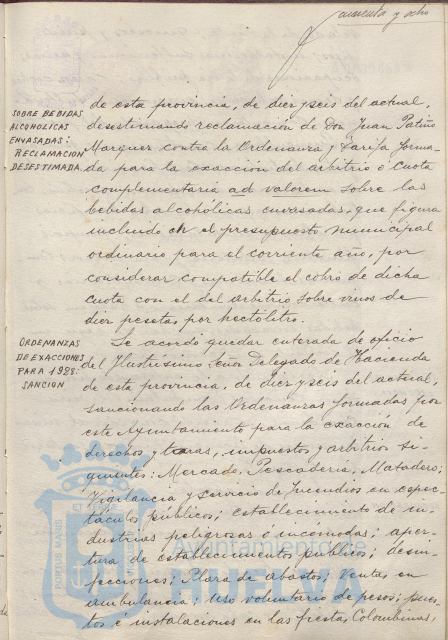 cuarenta y ocho
SOBRE BEBIDAS
ALCOHOLICAS
ENVASADAS:
RECLAMACION
DESESTIMADA
de esta provincia, de diez y seis del actual,
desestimando reclamación de Don Juan Patiño
Marquez contra la Ordenanza y tarifa forma-
da para la exacción del arbitrio o cuota
complementaria ad valorem sobre las
bebidas alcohólicas envasadas, que figura
incluido en el presupuesto municipal
ordinario para el corriente año, por
considerar compatible el cobro de dicha
cuota con el del arbitrio sobre vinos de
diez pesetas por hectólitro.
ORDENANZAS
DE EXACCIONES
PARA 1928:
SANCION
Se acordó quedar enterada de oficio
del Ilustrísimo Señor Delegado de Hacienda
de esta provincia, de diez y seis del actual,
sancionando las Ordenanzas formadas por
este Ayuntamiento para la exacción de
derechos y tasas, impuestos y arbitrios si-
guientes: Mercado, Pescadería, Matadero;
Vigilancia y servicio de Incendios en espec-
táculos públicos; establecimiento de in-
dustrias peligrosas é incómodas; aper-
tura de establecimientos públicos; desin-
fecciones; Plaza de abastos; Ventas en
ambulancia; Uso voluntario de pesos; pues-
tos é instalaciones en las fiestas Colombinas,
PORTUS MARIS
Ayuntamiento de
HUELVA